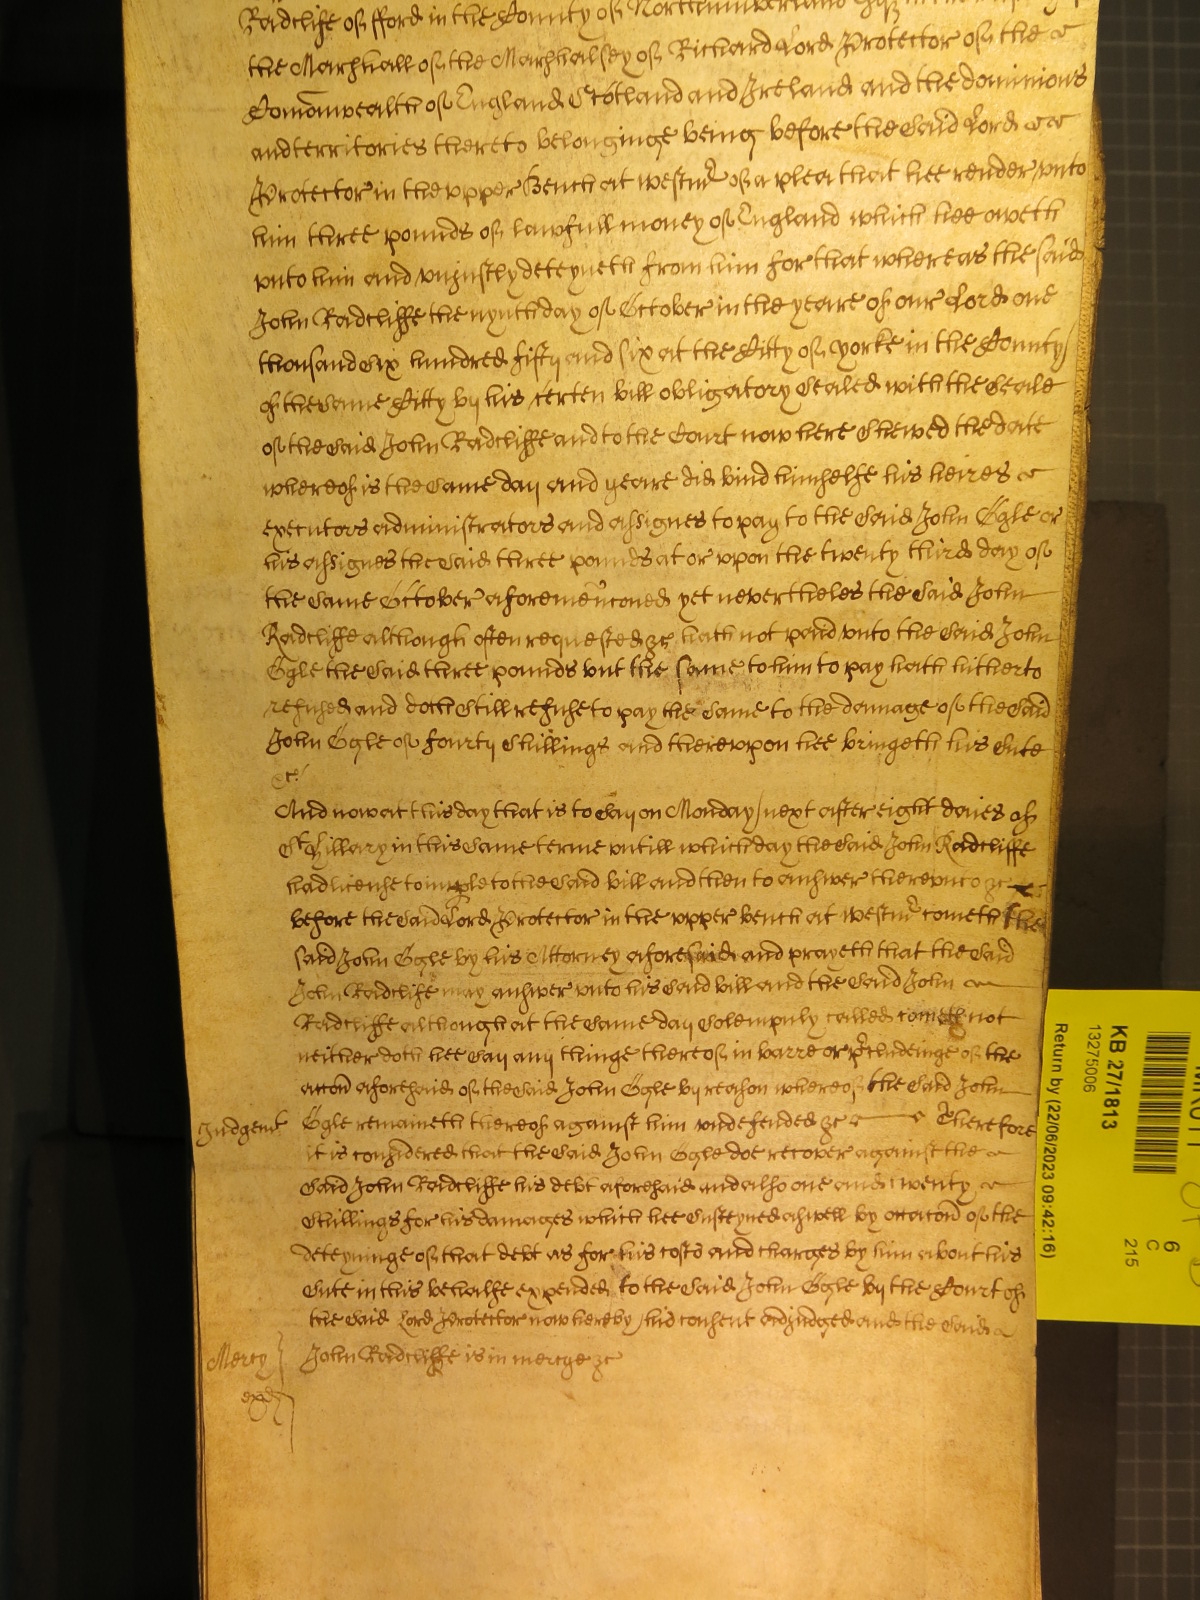 Radcliffe of fford in the County of Northumberland Esqr in the
the Marshall of the Marshalsey of Richard Lord Protector of the
Comonwealth of England Scotland and Ireland and the dominions
and territories thereto belonginge being before the said Lord
Protector in the upper Bench at Westmr of a plea that hee render unto
him three pounds of lawfull money of England which hee oweth
unto him and unjustly deteyneth from him for that whereas the said
John Radcliffe the nynth day of October in the yeare of our Lord one
thousand six hundred fifty and six at the Citty of yorke in the County
of the same Citty by his certen bill obligatory sealed with the seale
of the said John Radcliffe and to the Court now here shewed the date
whereof is the same day and yeare did bind himselfe his heires
executors administrators and assignes to pay to the said John Ogle or
his assignes the said three pounds at or upon the twenty third day of
the same October aforemenconed yet nevertheles the said John
Radcliffe although often requested &c hath not paid unto the said John
Ogle the said three pounds but the same to him to pay hath hitherto
refused and doth still refuse to pay the same to the damage of the said
John Ogle of fourty shillings and thereupon hee bringeth his sute
&c
And now at this day that is to say on Monday next after eight daies of
St Hillary in this same terme untill which day the said John Radcliffe
had license to imple to the said bill and then to answer thereunto &c
before the said Lord Protector in the upper bench at Westmr cometh the
said John Ogle by his Attorney aforesaid and prayeth that the said
John Radcliffe may answer unto his said bill and the said John
Radcliffe although at the same day solempnly called cometh not
neither doth hee say any thinge thereof in barre or preludeinge of the
accon aforesaid of the said John Ogle by reason whereof the said John
Judgemt Ogle remaineth thereof against him undefended &c Therefore
it is considered that the said John Ogle doe recover against the
said John Radcliffe his debt aforesaid and also one and twenty
shillings for his damages which hee susteyned aswell by occacon of the
deteyninge of that debt as for his costs and charges by him about his
sute in this behalfe expended to the said John Ogle by the Court of
the said Lord Protector now here by his consent adjudged and the said
Mercy John Radcliffe is in mercye &c
KB 27/1813
13275006
Return by (22/06/2023 09:42:16)
6
C
215